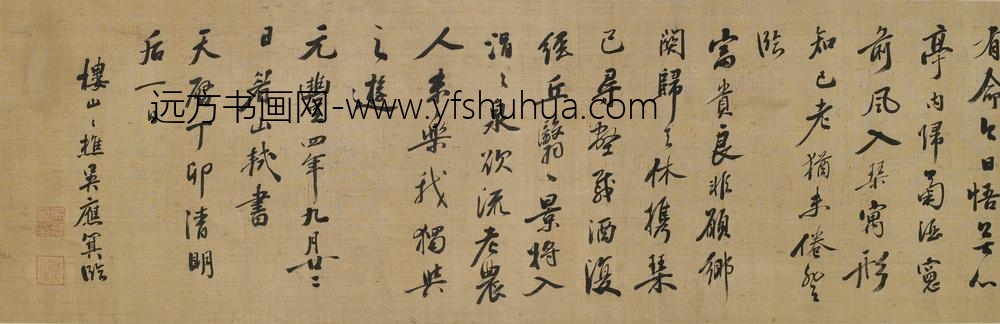 有命今日悟無心
亭内歸菊酒窻
前風入琴寓形
知已老猶未倦登
臨
富貴良非願鄉
關歸去休携琴
已尋壑載酒復
經丘翳〻景將入
涓〻泉欲流老農
人未樂我獨與
之遊
元豐四年九月廿二
日眉山軾書
天啟丁卯清明
后一日
樓山〻樵吳應箕臨
远方书画网-www.yfshuhua.com